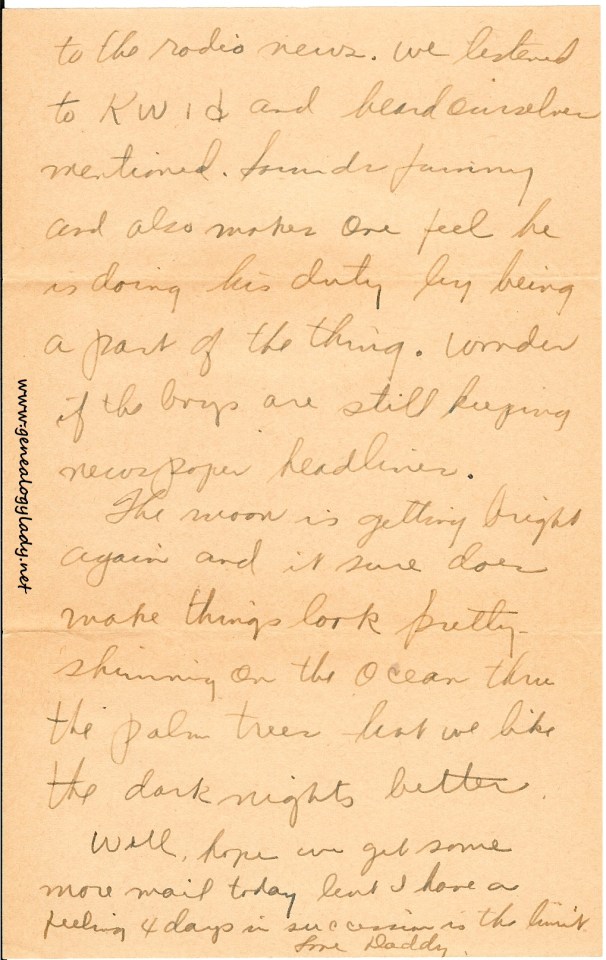 to the radio news. We listened
to KWID and heard ourselves
mentioned. Sounds funny
and also makes one feel he
is doing his duty by being
a part of the thing. Wonder
if the boys are still keeping
newspaper headlines.
The moon is getting bright
again and it sure does
make things look pretty-
shinning on the ocean thru
the palm trees but we like
the dark nights better.
Well, hope we get some
more mail today but I have a
feeling 4 days in succession is the limit.
Love Daddy.
www.genealogylady.net